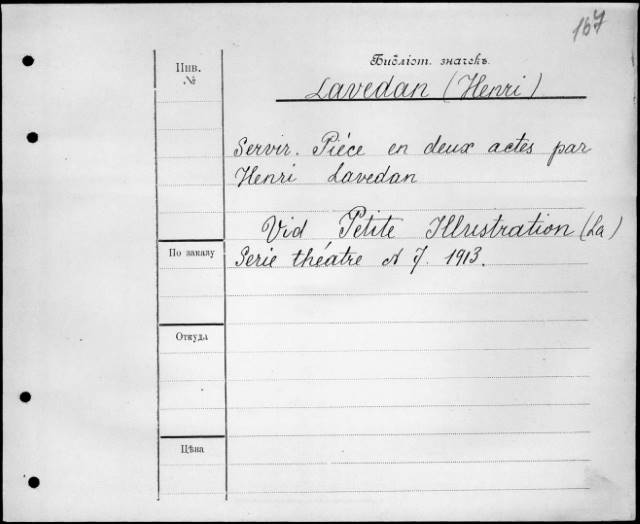 167
Библіот. значекъ.
Инв.
№
Lavedan (Henri)
Servir. Piéce en deux actes par
Henri Lavedan
Vid Petite Illustration (La)
По заказу
Serie théatre N 7. 1913.
Откуда
Цѣна